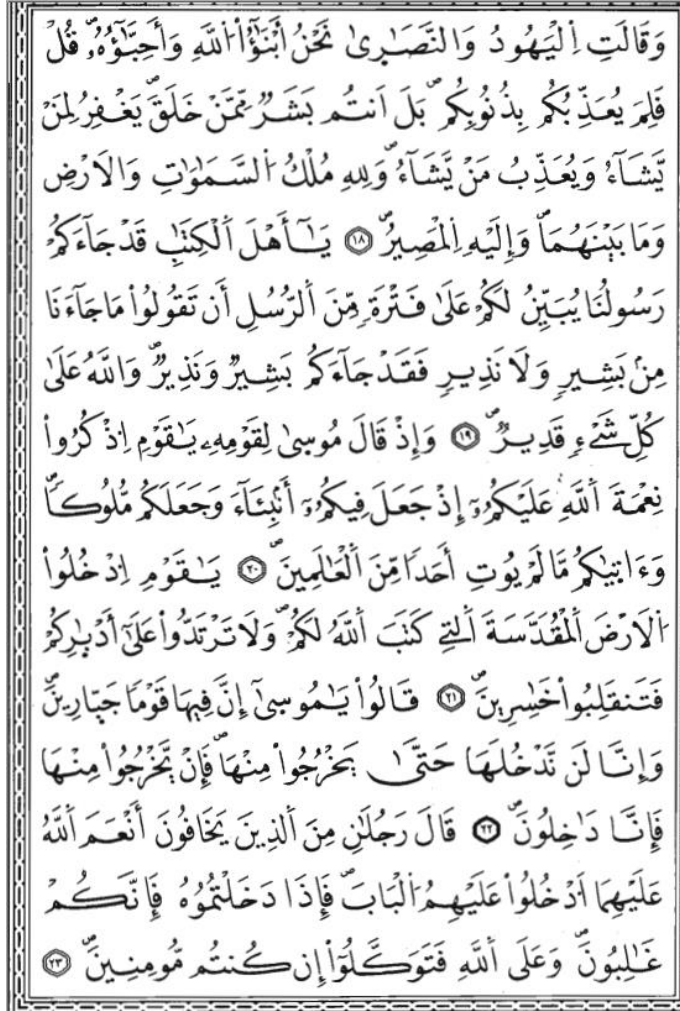 وَقَالَتِ اِ۬لْيَهُودُ وَالنَّصَٰر۪يٰ نَحْنُ أَبْنَٰٓؤُاْ اُ۬للَّهِ وَأَحِبَّٰٓؤُهُۥۖ قُلْ
فَلِمَ يُعَذِّبُكُم بِذُنُوبِكُمۖ بَلَ اَنتُم بَشَرٞ مِّمَّنْ خَلَقَۖ يَغْفِرُ لِمَنْ
يَّشَآءُ وَيُعَذِّبُ مَنْ يَّشَآءُۖ وَلِلهِ مُلْكُ اُ۬لسَّمَٰوَٰتِ وَالَارْضِ
وَمَا بَيْنَهُمَاۖ وَإِلَيْهِ اِ۬لْمَصِيرُۖ ۝١٨ يَٰٓأَهْلَ اَ۬لْكِتَٰبِ قَدْ جَآءَكُمْ
رَسُولُنَا يُبَيِّنُ لَكُمْ عَلَىٰ فَتْرَةٖ مِّنَ اَ۬لرُّسُلِ أَن تَقُولُواْ مَا جَآءَنَا
مِنۢ بَشِيرٖ وَلَا نَذِيرٖ فَقَدْ جَآءَكُم بَشِيرٞ وَنَذِيرٞۖ وَاللَّهُ عَلَىٰ
كُلِّ شَےْءٖ قَدِيرٞۖ ۝١٩ وَإِذْ قَالَ مُوس۪يٰ لِقَوْمِهِۦ يَٰقَوْمِ اِ۟ذْكُرُواْ
نِعْمَةَ اَ۬للَّهِ عَلَيْكُمُۥٓ إِذْ جَعَلَ فِيكُمُۥٓ أَنۢبِئَآءَ وَجَعَلَكُم مُّلُوكاٗۖ
وَءَات۪يٰكُم مَّا لَمْ يُوتِ أَحَداٗ مِّنَ اَ۬لْعَٰلَمِينَۖ ۝٢٠ يَٰقَوْمِ اِ۟دْخُلُواْ
اُ۬لَارْضَ اَ۬لْمُقَدَّسَةَ اَ۬لتِے كَتَبَ اَ۬للَّهُ لَكُمْۖ وَلَا تَرْتَدُّواْ عَلَىٰٓ أَدْبٰ۪رِكُمْ
فَتَنقَلِبُواْ خَٰسِرِينَۖ ۝٢١ قَالُواْ يَٰمُوس۪يٰٓ إِنَّ فِيهَا قَوْماٗ جَبّ۪ارِينَۖ
وَإِنَّا لَن نَّدْخُلَهَا حَتَّىٰ يَخْرُجُواْ مِنْهَاۖ فَإِنْ يَّخْرُجُواْ مِنْهَا
فَإِنَّا دَٰخِلُونَۖ ۝٢٢ قَالَ رَجُلَٰنِ مِنَ اَ۬لذِينَ يَخَافُونَ أَنْعَمَ اَ۬للَّهُ
عَلَيْهِمَا اَ۟دْخُلُواْ عَلَيْهِمُ اُ۬لْبَابَۖ فَإِذَا دَخَلْتُمُوهُ فَإِنَّكُمْ
غَٰلِبُونَۖ وَعَلَى اَ۬للَّهِ فَتَوَكَّلُوٓاْ إِن كُنتُم مُّومِنِينَۖ ۝٢٣